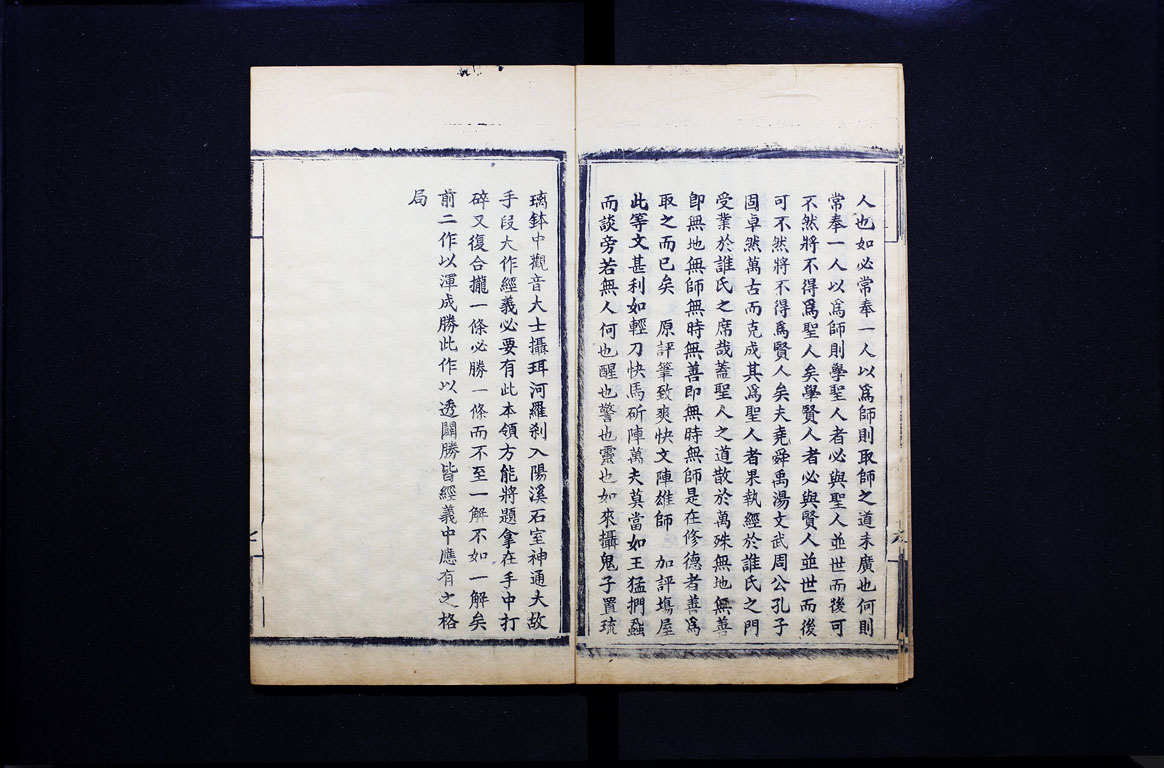 人也如必常奉一人以爲師則取師之道未廣也何則
常奉一人以爲師則學聖人者必與聖人並世而後可
不然將不得爲聖人矣學賢人者必與賢人並世而後
可不然將不得爲賢人矣夫堯舜禹湯文武周公孔子
固卓然萬古而克成其爲聖人者果執經於誰氏之門
受業於誰氏之席哉蓋聖人之道散於萬殊無地無善
卽無地無師無時無善即無時無師是在修德者善爲
取之而已矣 原評筆致爽快文陣雄師 加評塲屋
此等文甚利如輕刀快馬斫陣萬夫莫當如王猛捫蝨
而談旁若無人何也醒也警也靈也如來攝鬼子置琉
璃鉢中觀音大士攝珥河羅刹入陽溪石室神通大故
手段大作經義必要有此本領方能將題拿在手中打
碎又復合攏一條必勝一條而不至一解不如一解矣
前二作以渾成勝此作以透闢勝皆經義中應有之格
局